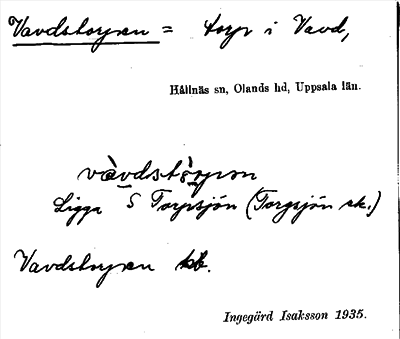 Vavdstorpen = torp i Vavd,
Hållnäs sn, Olands hd, Uppsala län.
vàvdstòrpən
Ligga S Torpsjön (Torgsjön sk.)
Vavdstorpen kb.
Ingegärd Isaksson 1935.